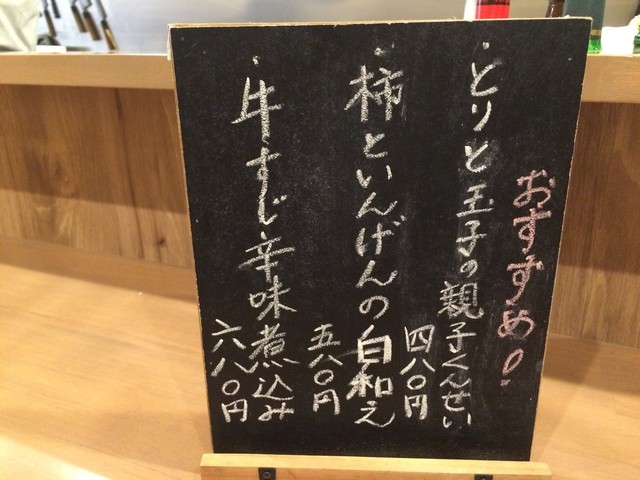 おすすめ!
・とりと玉子の親子くんせい
四八〇円
・柿といんげんの白和え
五八〇円
・牛すじ辛味煮込み
六八〇円